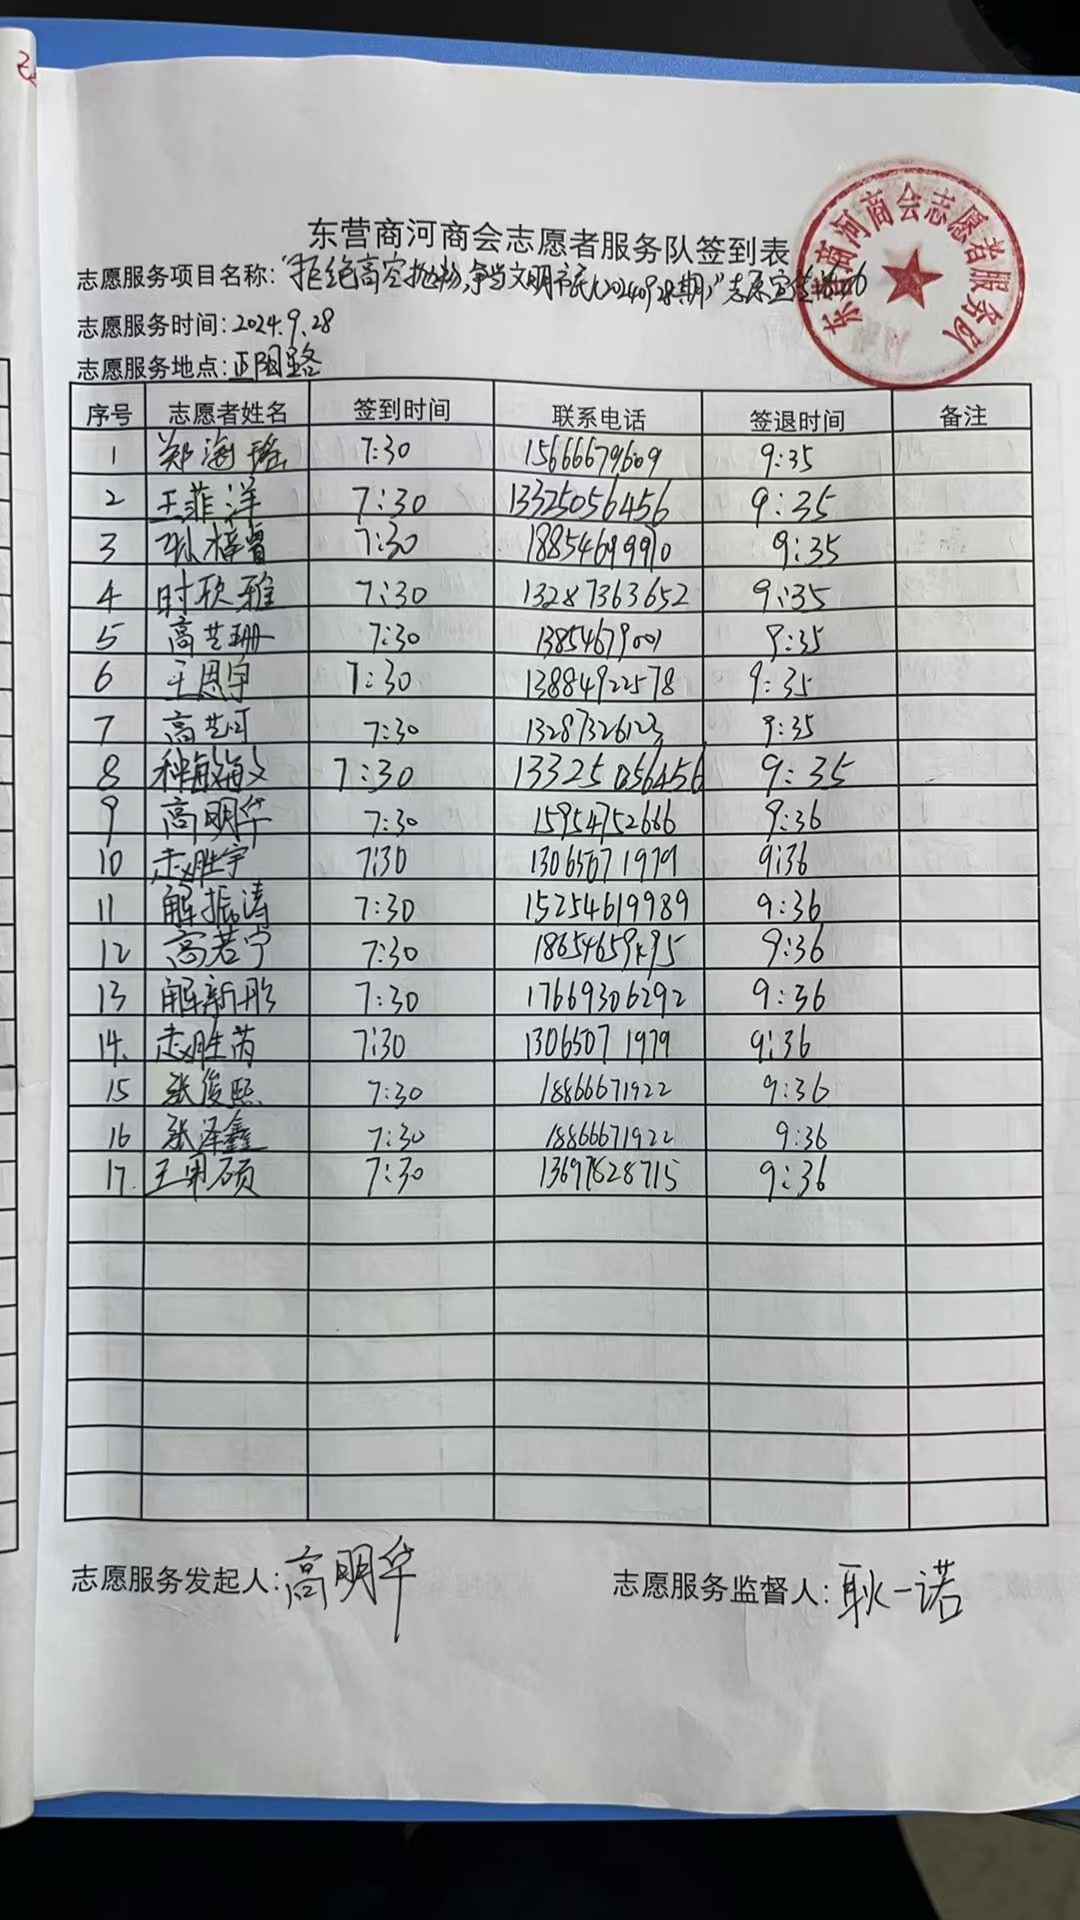 东营商河商会志愿者服务队签到表
志愿服务项目名称：“拒绝高空抛物，争当文明市民（20240928期）”志愿宣传活动
志愿服务时间：2024.9.28
志愿服务地点：正阳路
东营商河商会志愿者服务队
序号 志愿者姓名 签到时间 联系电话 签退时间 备注
1 郑海瑶 7:30 15666679609 9:35
2 王菲洋 7:30 13325056456 9:35
3 孙梓睿 7:30 18854699910 9:35
4 时欣雅 7:30 13287363652 9:35
5 高艺珊 7:30 13854679001 9:35
6 王恩宇 7:30 13884922578 9:35
7 高艺可 7:30 13287326123 9:35
8 种敏敏 7:30 13325056456 9:35
9 高明华 7:30 15954752666 9:36
10 赵胜宇 7:30 13065071979 9:36
11 解振涛 7:30 15254619989 9:36
12 高若宁 7:30 9:36
13 解新彤 7:30 17669306292 9:36
14. 赵胜芮 7:30 13065071979 9:36
15 张俊熙 7:30 18866671922 9:36
16 张泽鑫 7:30 18866671922 9:36
17. 王男硕 7:30 13697828715 9:36
志愿服务发起人：高明华 志愿服务监督人：耿一诺